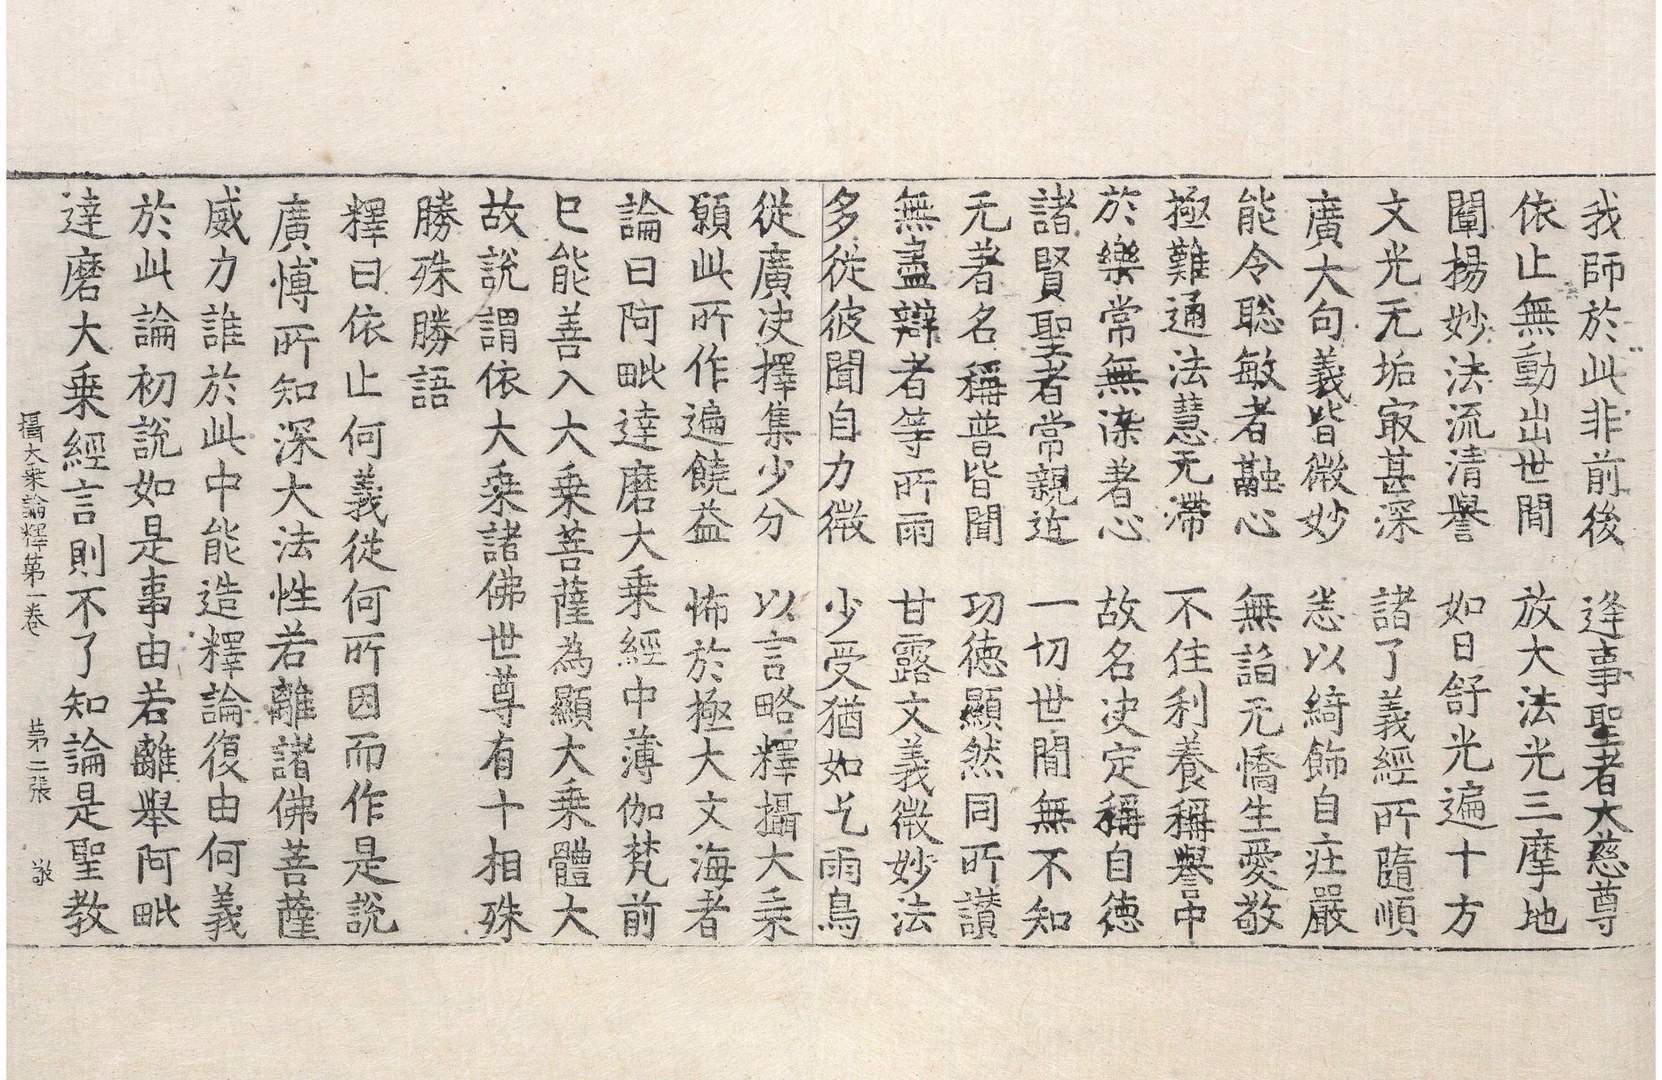 我師於此非前後　逢事聖者大慈尊
依止無動出世間　放大法光三摩地
闡揚妙法流清譽　如日舒光遍十方
文光无垢㝡甚深　諸了義經所隨順
廣大句義皆微妙　恙以綺飾自莊嚴
能令聡敏者融心　無諂无憍生愛敬
極難通法慧无滯　不住利養稱譽中
於樂常無染著心　故名决定稱自德
諸賢聖者常親近　一切世間無不知
无著名稱普皆聞　功德顯然同所讃
無盡辯者等所雨　甘露文義微妙法
多從彼聞自力微　少受猶如乞雨鳥
從廣决擇集少分　以言略釋攝大乘
願此所作遍饒益　怖於極大文海者
論曰阿毗達磨大乘經中薄伽梵前
已能善入大乘菩薩為顯大乘體大
故說謂依大乘諸佛世尊有十相殊
勝殊勝語
釋曰依止何義從何所因而作是說
廣博所知深大法性若離諸佛菩薩
威力誰於此中能造釋論復由何義
於此論初說如是事由若離舉阿毗
達磨大乘經言則不了知論是聖教
攝大乘論釋第一卷　第二張　敬